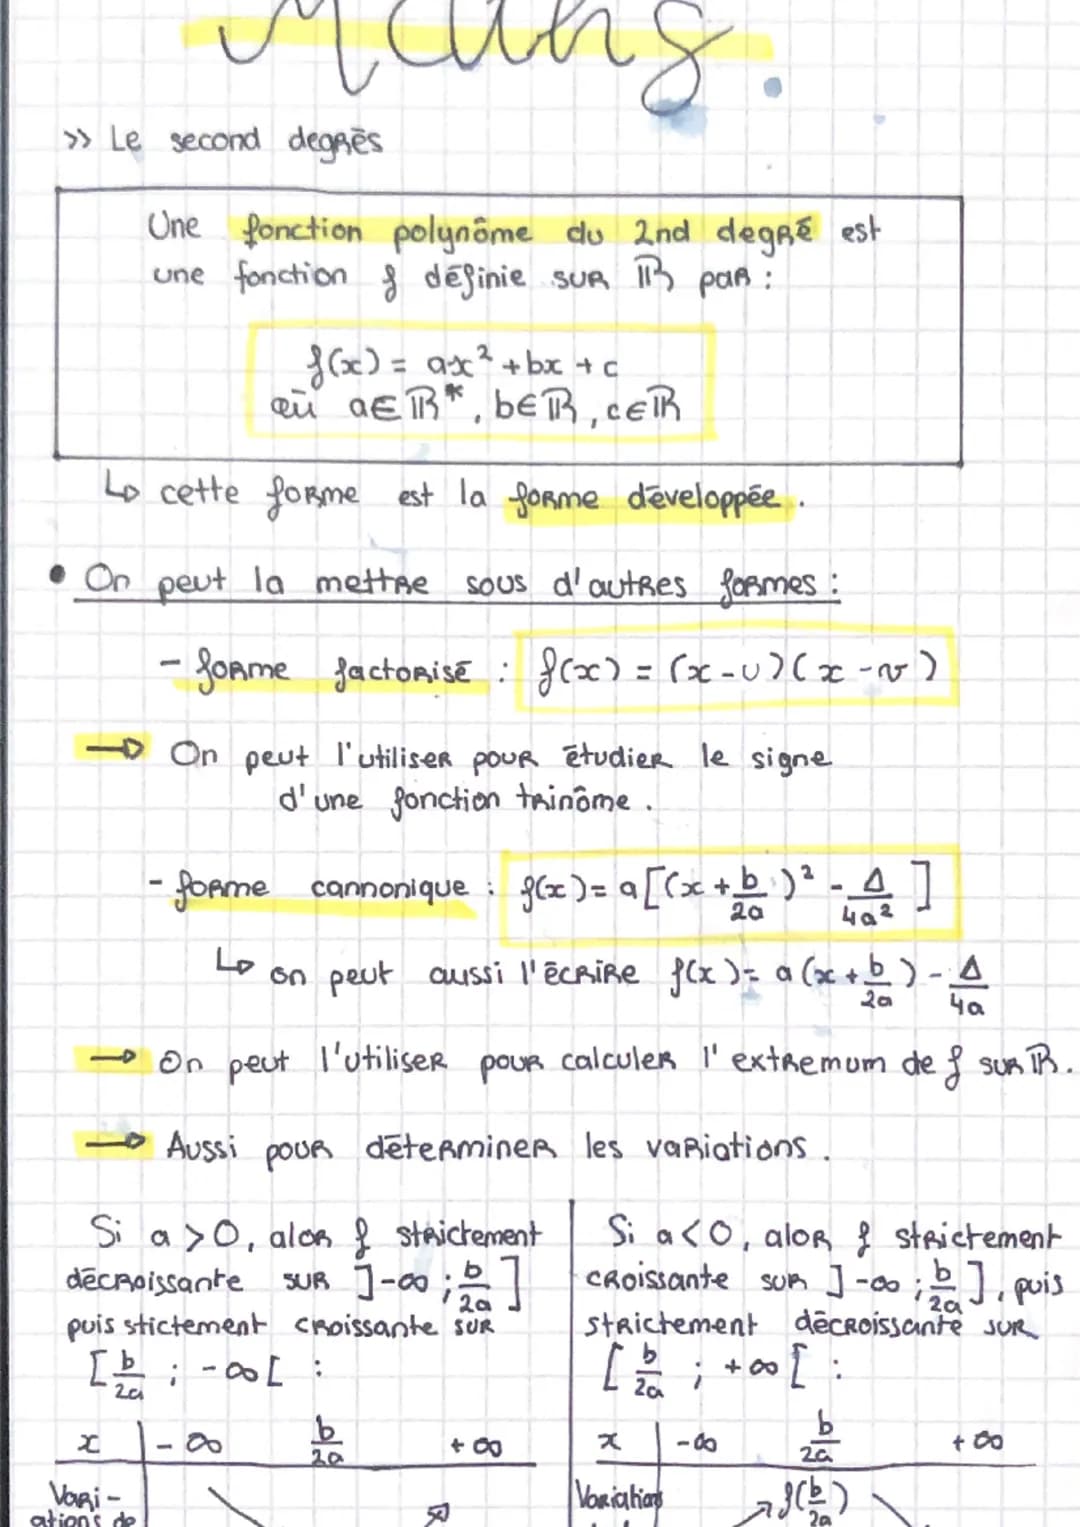 Maths
>> Le second degrés
Une fonction polynôme du 2nd degré est
une fonction f définie sur ℝ par :
f(x) = ax² + bx + c
où a∈ℝ*, b∈ℝ, c∈ℝ
↳ cette forme est la forme développée.
• On peut la mettre sous d'autres formes :
- forme factorisé : f(x) = (x-u)(x-v)
→ On peut l'utiliser pour étudier le signe
d'une fonction trinôme.
- forme cannonique : f(x) = a[(x + b/2a)² - Δ/4a²]
↳ on peut aussi l'écrire f(x) = a(x + b/2a) - Δ/4a
→ On peut l'utiliser pour calculer l'extremum de f sur ℝ.
→ Aussi pour déterminer les variations.
Si a > 0, alor f strictement
décroissante sur ]-∞ ; b/2a]
puis stictement croissante sur
[b/2a ; -∞[ :
x -∞ b/2a +∞
Vari-
ations de
Si a < 0, alor f strictement
croissante sur ]-∞ ; b/2a], puis
strictement décroissante sur
[b/2a ; +∞[ :
x -∞ b/2a +∞
Variations f(b/2a)